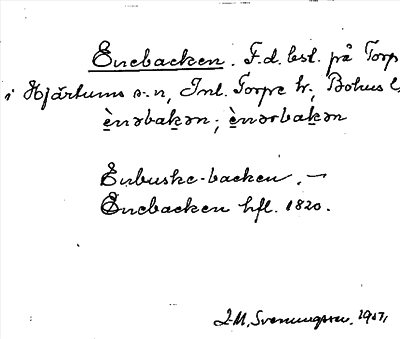 Enebacken. F.d. bst. på Torp
i Hjärtums s-n, Inl. Torpe hr, Bohus l,
ènəbak̬ən; ènərbak̬ən
Enbuske-backen. –
Enebacken hfl. 1820.
J.M. Svenungsson. 1917,